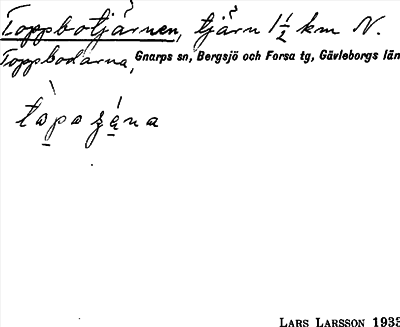 Toppbotjärnen, tjärn 1½ km N.
Toppbodarna, Gnarps sn, Bergsjö och Forsa tg, Gävleborgs län
LARS LARSSON 1933